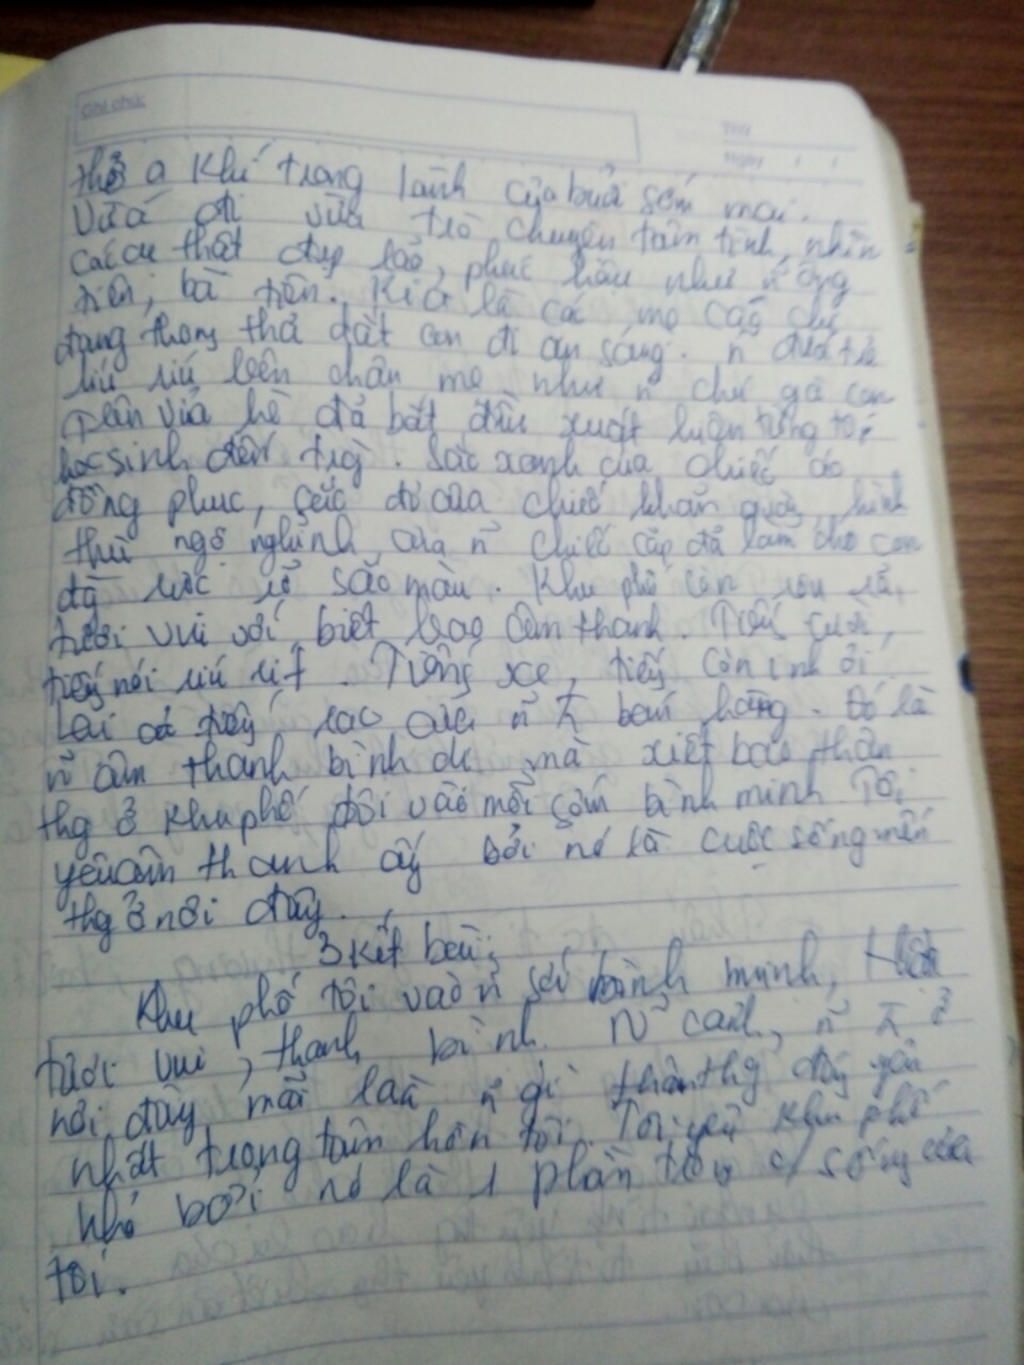 Ghi chú:
Thứ
Ngày / /
khí trong lành của buổi sớm mai.
vừa đi vừa trò chuyện tâm tình, nhìn
các cụ thật đẹp lão, phúc hậu như ñ ông
tiên, bà tiên. Kia là các mẹ các chị
đang thong thả dắt con đi ăn sáng. ñ đứa trẻ
líu ríu bên chân mẹ như ñ chú gà con
Trên vỉa hè đã bắt đầu xuất hiện từng tốp
học sinh đến trg. Sắc xanh của chiếc áo
đồng phục, sắc đỏ của chiếc khăn quàng, hình
thù ngộ nghĩnh của ñ chiếc cặp đã làm cho con
đg rực rỡ sắc màu. Khu phố còn
tươi vui với biết bao âm thanh. Tiếng cười,
tiếng nói ríu rít. Tiếng xe, tiếng còi inh ỏi
Lại có tiếng rao của ñ bán hàng. Đó là
ñ âm thanh bình dị mà xiết bao thân
thg ở khu phố tôi vào mỗi sớm bình minh. Tôi
yêu âm thanh ấy bởi nó là cuộc sống mến
thg ở nơi đây.
3 kết bài:
Khu phố tôi vào ñ bình minh,
tươi vui, thanh bình. ñ cảnh, ñ ở
nơi đây mãi là ñ gì thân thg đáng yêu
nhất trong tâm hồn tôi. Tôi yêu khu phố
nhỏ bởi nó là 1 phần trong c/ sống của
tôi.